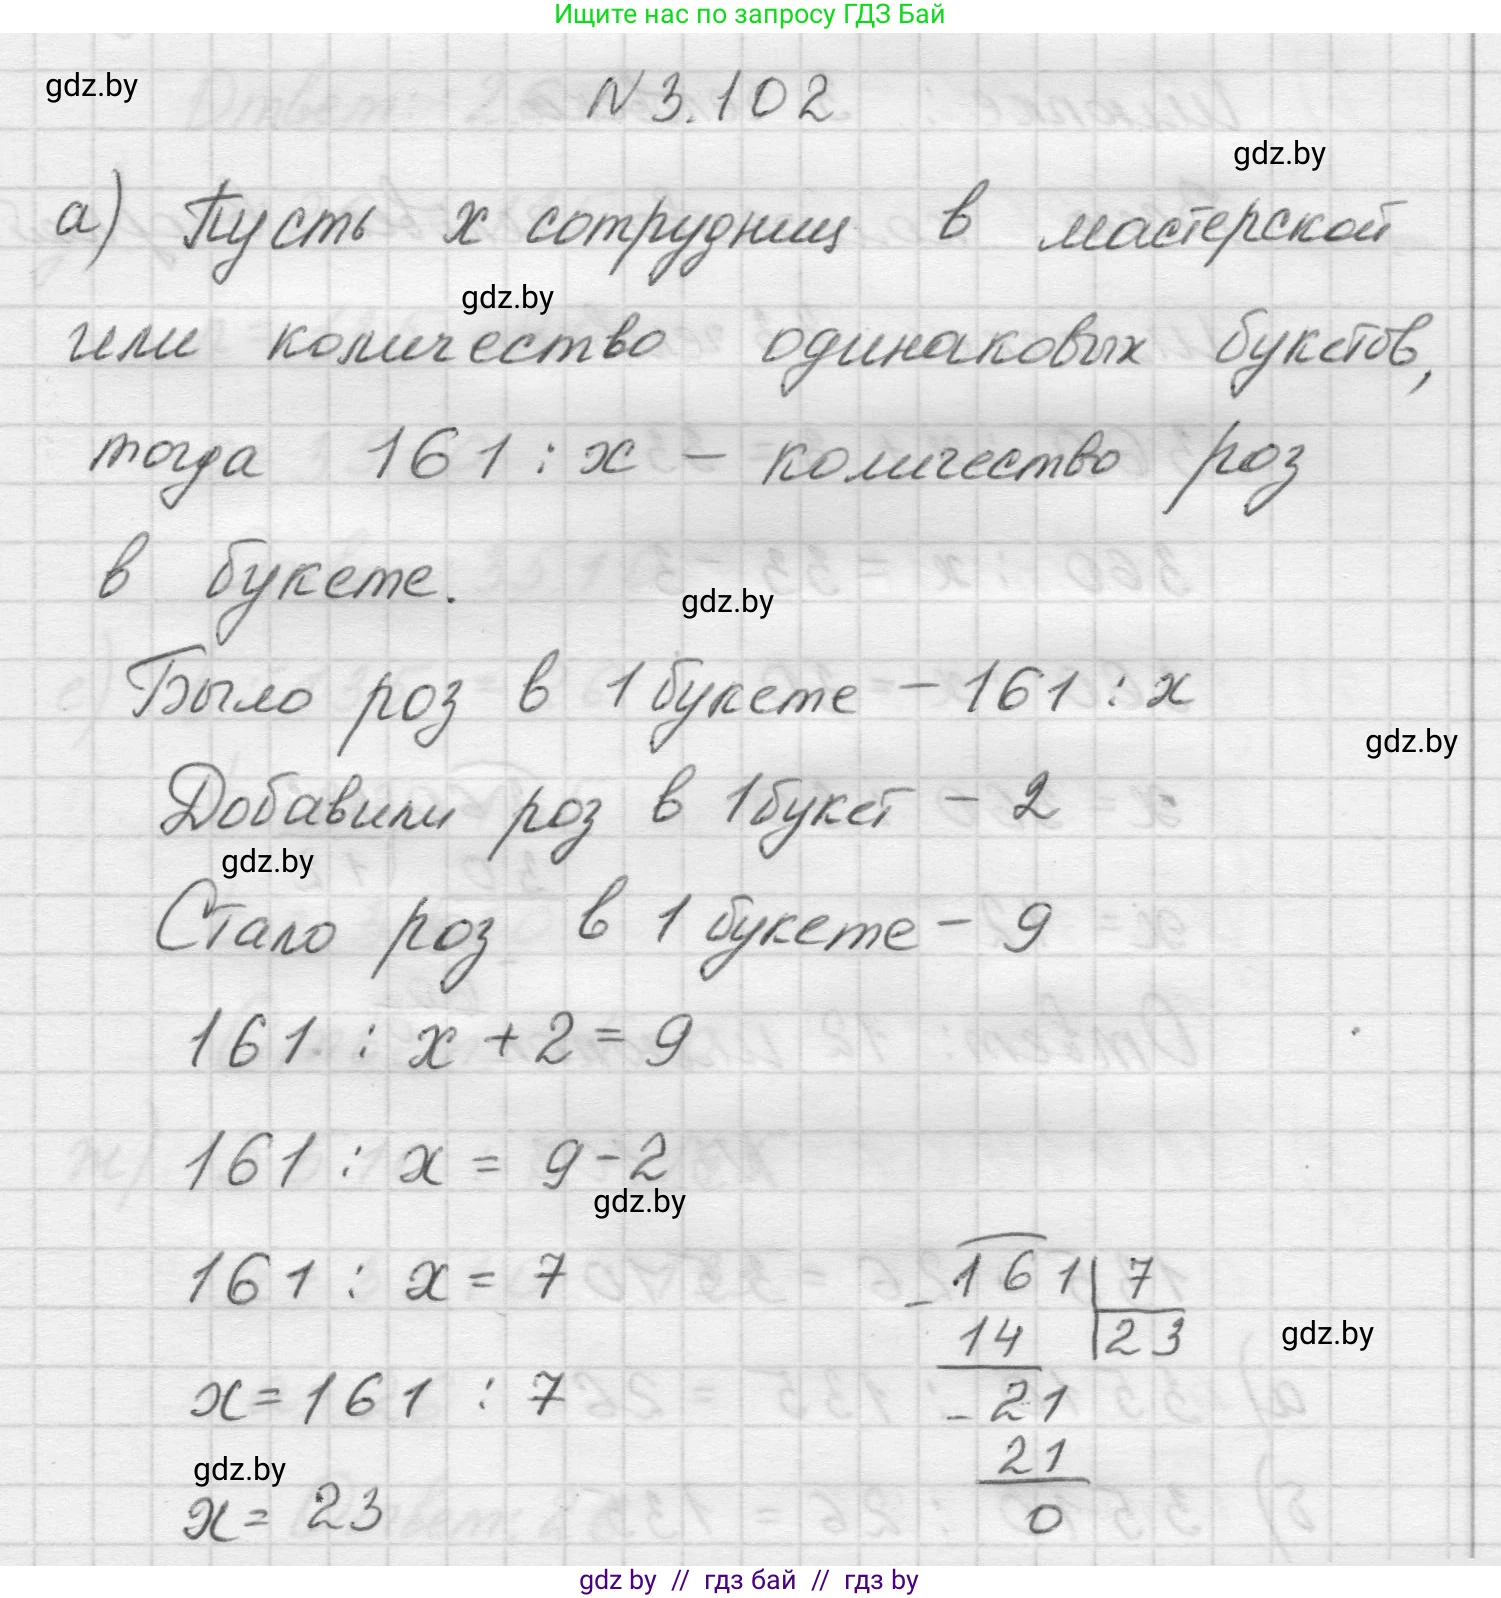 Ищите нас по запросу ГДЗ Бай
gdz.by
N 3.102
gdz.by
а) Пусть x сотрудниц в мастерской
gdz.by
или количество одинаковых букетов,
тогда 161 : x – количество роз
в букете.
gdz.by
Было роз в 1 букете – 161 : x
gdz.by
Добавили роз в 1 букет – 2
gdz.by
Стало роз в 1 букете – 9
161 : x + 2 = 9
161 : x = 9 - 2
gdz.by
161 : x = 7
x = 161 : 7
gdz.by
x = 23
- 161 | 7
14 | 23
gdz.by
- 21
21
0
gdz by // гдз бай // гдз by